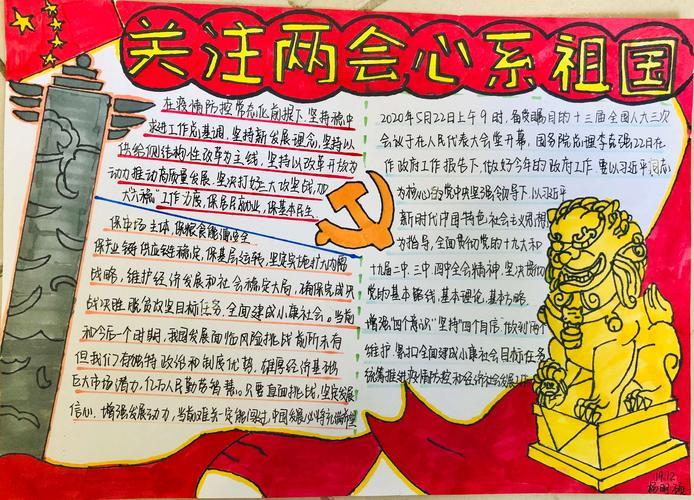 关注两会心系祖国
在疫情防控常态化前提下,坚持稳中
求进工作总基调,坚持新发展理念,坚持以
供给侧结构性改革为主线,坚持以改革开放为
动力推动高质量发展,坚决打好三大攻坚战,加
大"六稳"工作力度,保居民就业,保基本民生
保市场主体,保粮食能源安全
保产业链供应链稳定,保基层运转,坚定实施扩大内需
战略,维护经济发展和社会稳定大局,确保完成决
战决胜脱贫攻坚目标任务,全面建成小康社会。当前
和今后一个时期,我国发展面临风险挑战前所未有
但我们有独特政治和制度优势,雄厚经济基础
巨大市场潜力,亿万人民勤劳智慧。只要直面挑战,坚定发展
信心,增强发展动力,当前难关一定能闯过,中国发展必将充满希望
2020年5月22日上午9时,备受瞩目的十三届全国人大三次
会议于在人民代表大会堂开幕,国务院总理李克强22日在
作政府工作报告下,做好今年的政府工作,要以习近平同志
为核心的党中央坚强领导下,以习近平
新时代中国特色社会主义思想
为指导,全面贯彻党的十九大和
十九届二中、三中、四中全会精神,坚决贯彻
党的基本路线,基本理论,基本方略
增强"四个意识"坚持"四个自信"做到两个
维护,紧扣全面建成小康社会目标任务
统筹推进疫情防控和经济社会发展工作
19.12